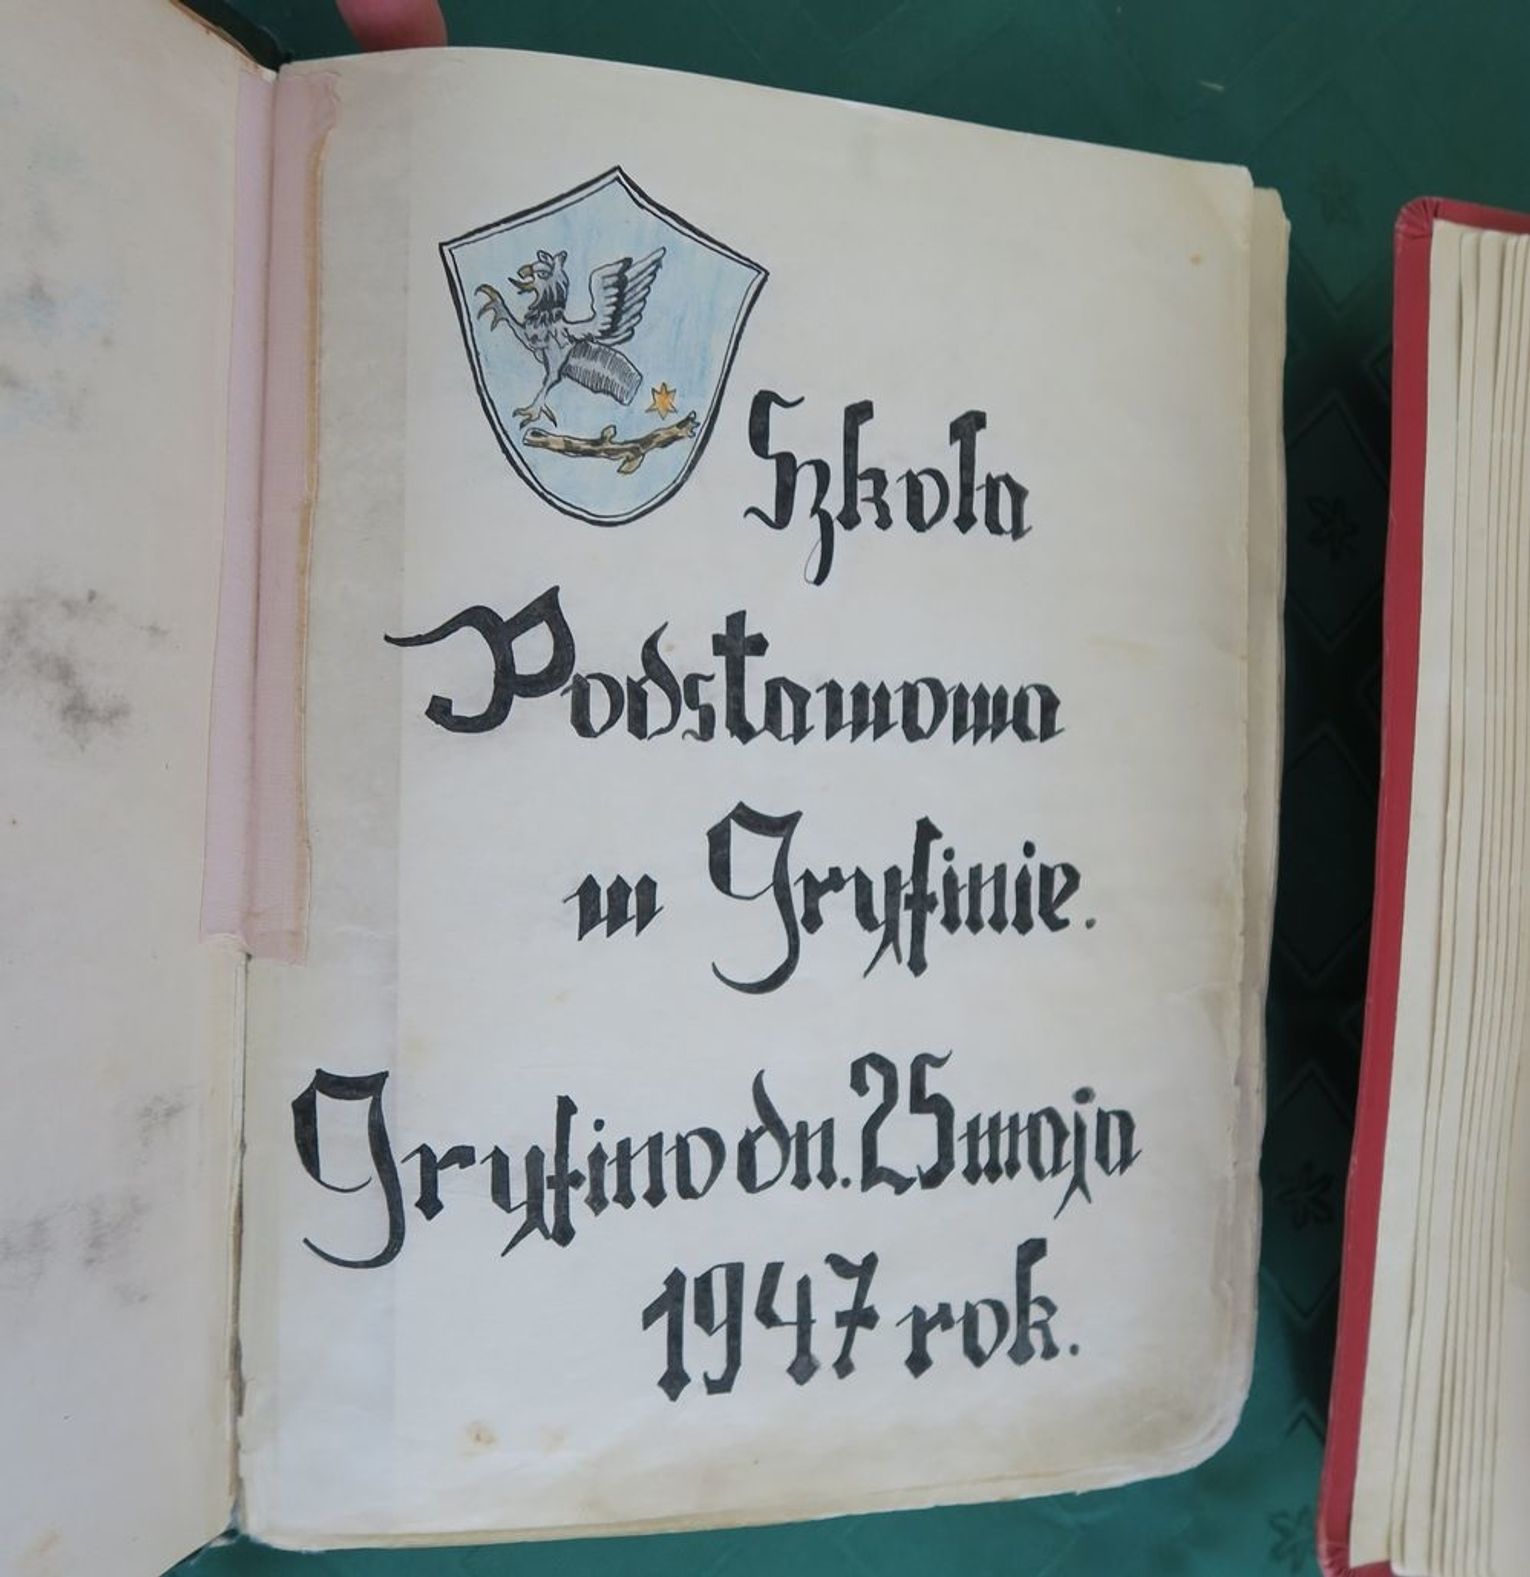 Szkoła
Podstawowa
w Gryfinie.
Gryfino dn. 25 maja
1947 rok.